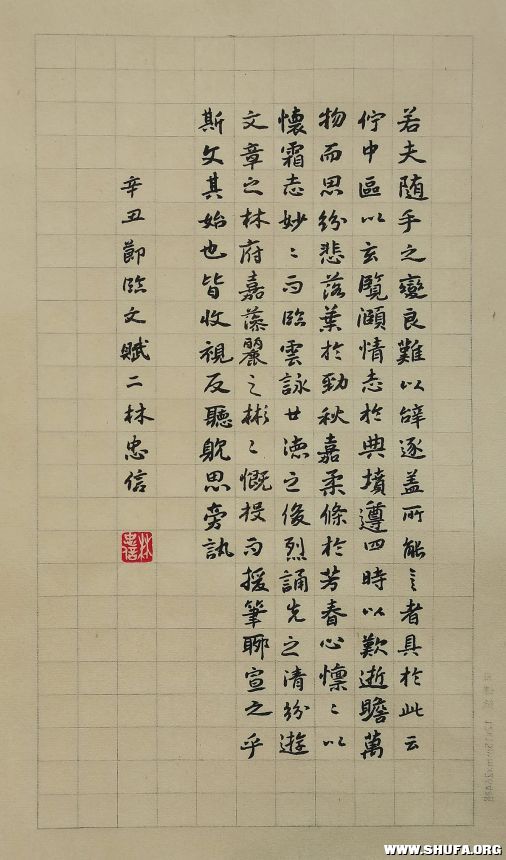 若夫随手之變良難以辝逐盖所能言者具於此云
佇中區以玄覽頤情志於典墳遵四時以歎逝瞻萬
物而思紛悲落葉於勁秋嘉柔條於芳春心懍〻以
懷霜志妙〻而臨雲詠世徳之後烈誦先之清紛遊
文章之林府嘉藻麗之彬〻慨投而援筆聊宣之乎
斯文其始也皆收視反聽躭思旁訊
辛丑節臨文賦二林忠信
林忠信
WWW.SHUFA.ORG